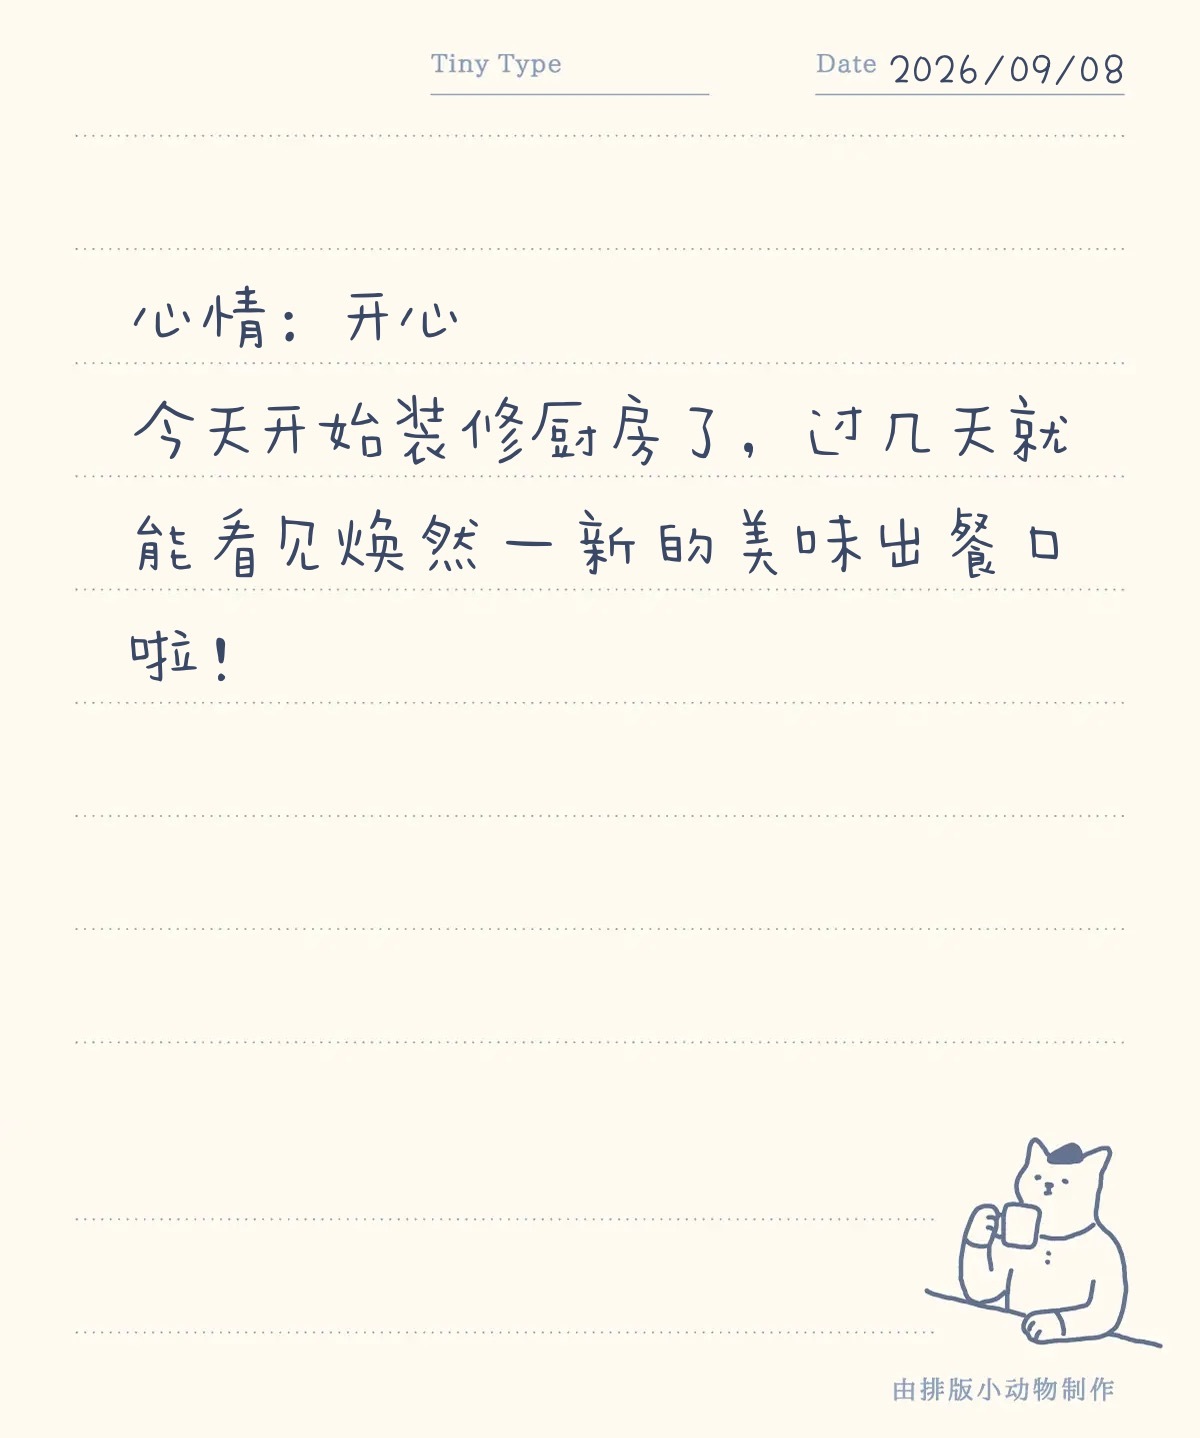 Tiny Type
Date 2026/09/08
心情：开心
今天开始装修厨房了，过几天就
能看见焕然一新的美味出餐口
啦！
由排版小动物制作